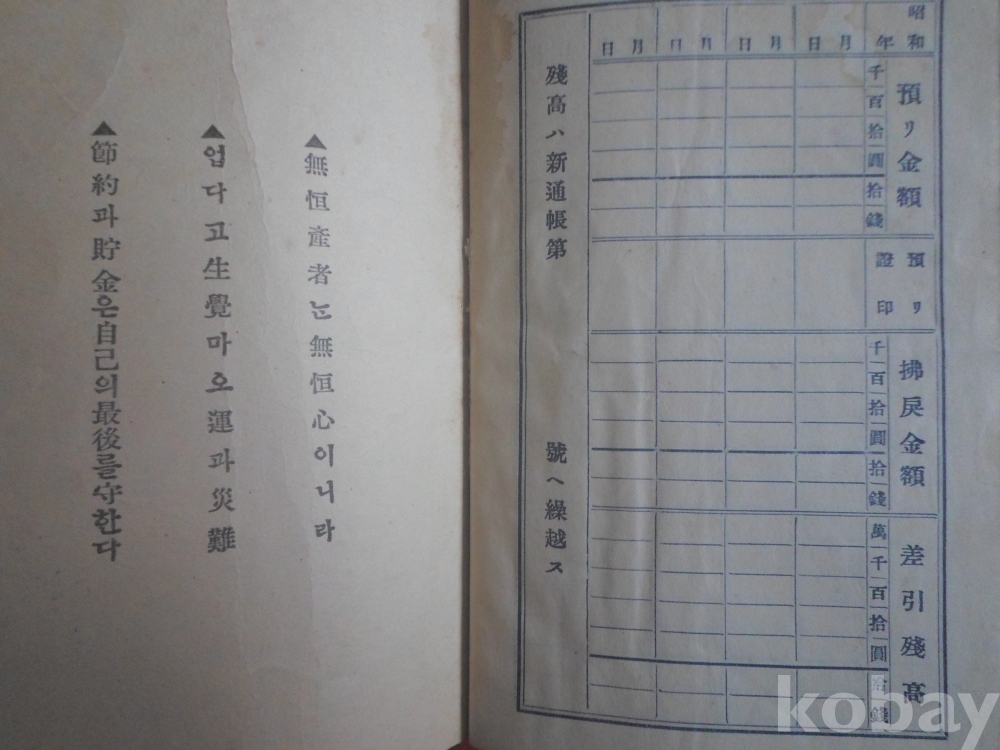 昭和 年 月 日 月 日 月 日 月 日
預リ金額
千百拾圓拾錢
預リ證印
拂戻金額
千百拾圓拾錢
差引殘高
萬千百拾圓拾錢
殘高ハ新通帳第 號ヘ繰越ス
▲無恒産者는無恒心이니라
▲업다고生覺마오運과災難
▲節約과貯金은自己의最後를守한다
kobay